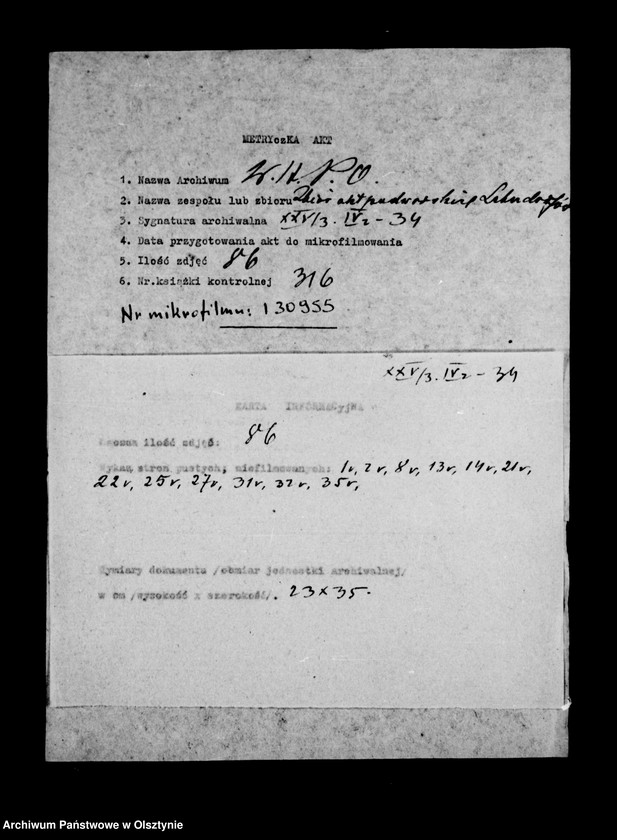 METRYczKA AKT
1. Nazwa Archiwum W.A.P.O.
2. Nazwa zespołu lub zbioru Zbiór akt podworskich Lehndorfów
3. Sygnatura archiwalna XXV/3. IV2 - 34
4. Data przygotowania akt do mikrofilmowania
5. Ilość zdjęć 86
6. Nr.książki kontrolnej 316
Nr mikrofilmu: 130955
XXV/3. IV2 - 34
KARTA INFORMACyjNA
ilość zdjęć: 86
Wykaz stron pustych, niefilmowanych: 1v, 2v, 8v, 13v, 14v, 21v,
22v, 25v, 27v, 31v, 32v, 35v,
Wymiary dokumentu /obmiar jednostki archiwalnej/
w cm /wysokość x szerokość/. 23x35.
Archiwum Państwowe w Olsztynie